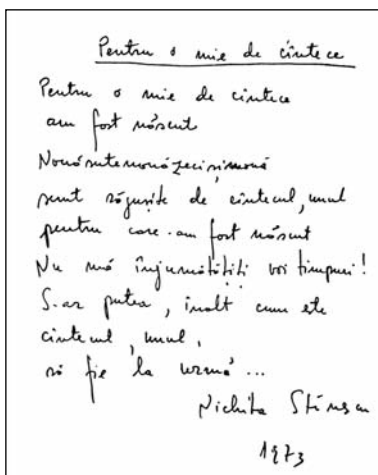 Pentru o mie de cîntece
Pentru o mie de cîntece
am fost născut
Nouăsutenouăzecișinouă
sunt răgușite de cîntecul, unul
pentru care-am fost născut
Nu mă înjumătățiți voi timpuri!
S-ar putea, înalt cum este
cîntecul, unul,
să fie la urmă...
Nichita Stănescu
1973